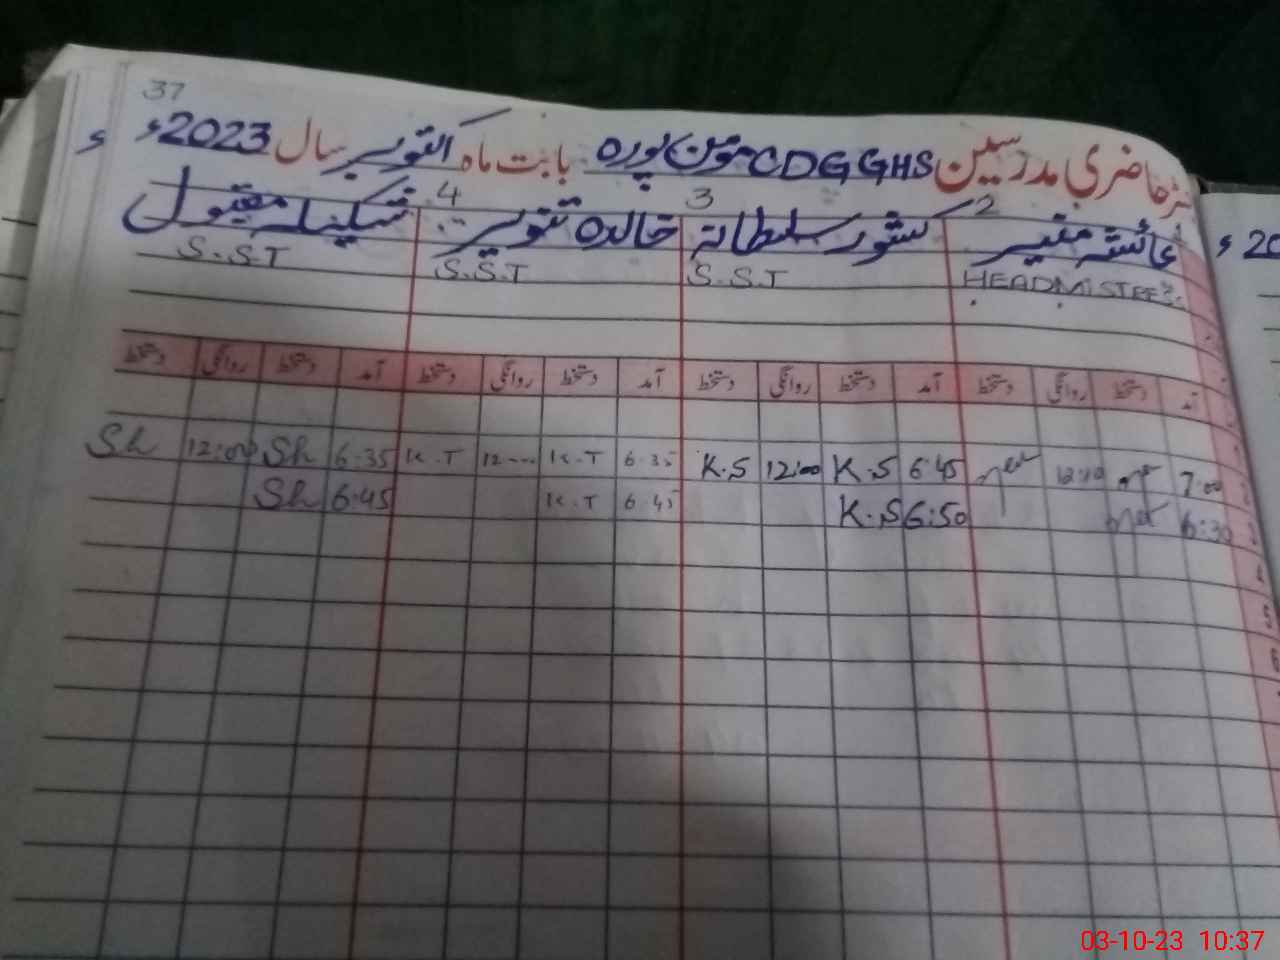 37
حاضری مدرسین CDGGHS مومن پورہ بابت ماہ اکتوبر سال 2023ء
2 3 4
عائشہ منیر کشور سلطانہ خالدہ تنویر شکیلہ مقبول
HEADMISTRESS S.S.T S.S.T S.S.T
آمد دستخط روانگی دستخط آمد دستخط روانگی دستخط آمد دستخط روانگی دستخط آمد دستخط روانگی دستخط
7:00 12:10 6:45 K.S 12:00 K.S 6:35 K.T 12:00 K.T 6:35 Sh 12:00 Sh
6:30 6:50 K.S 6:45 K.T 6:45 Sh
03-10-23 10:37